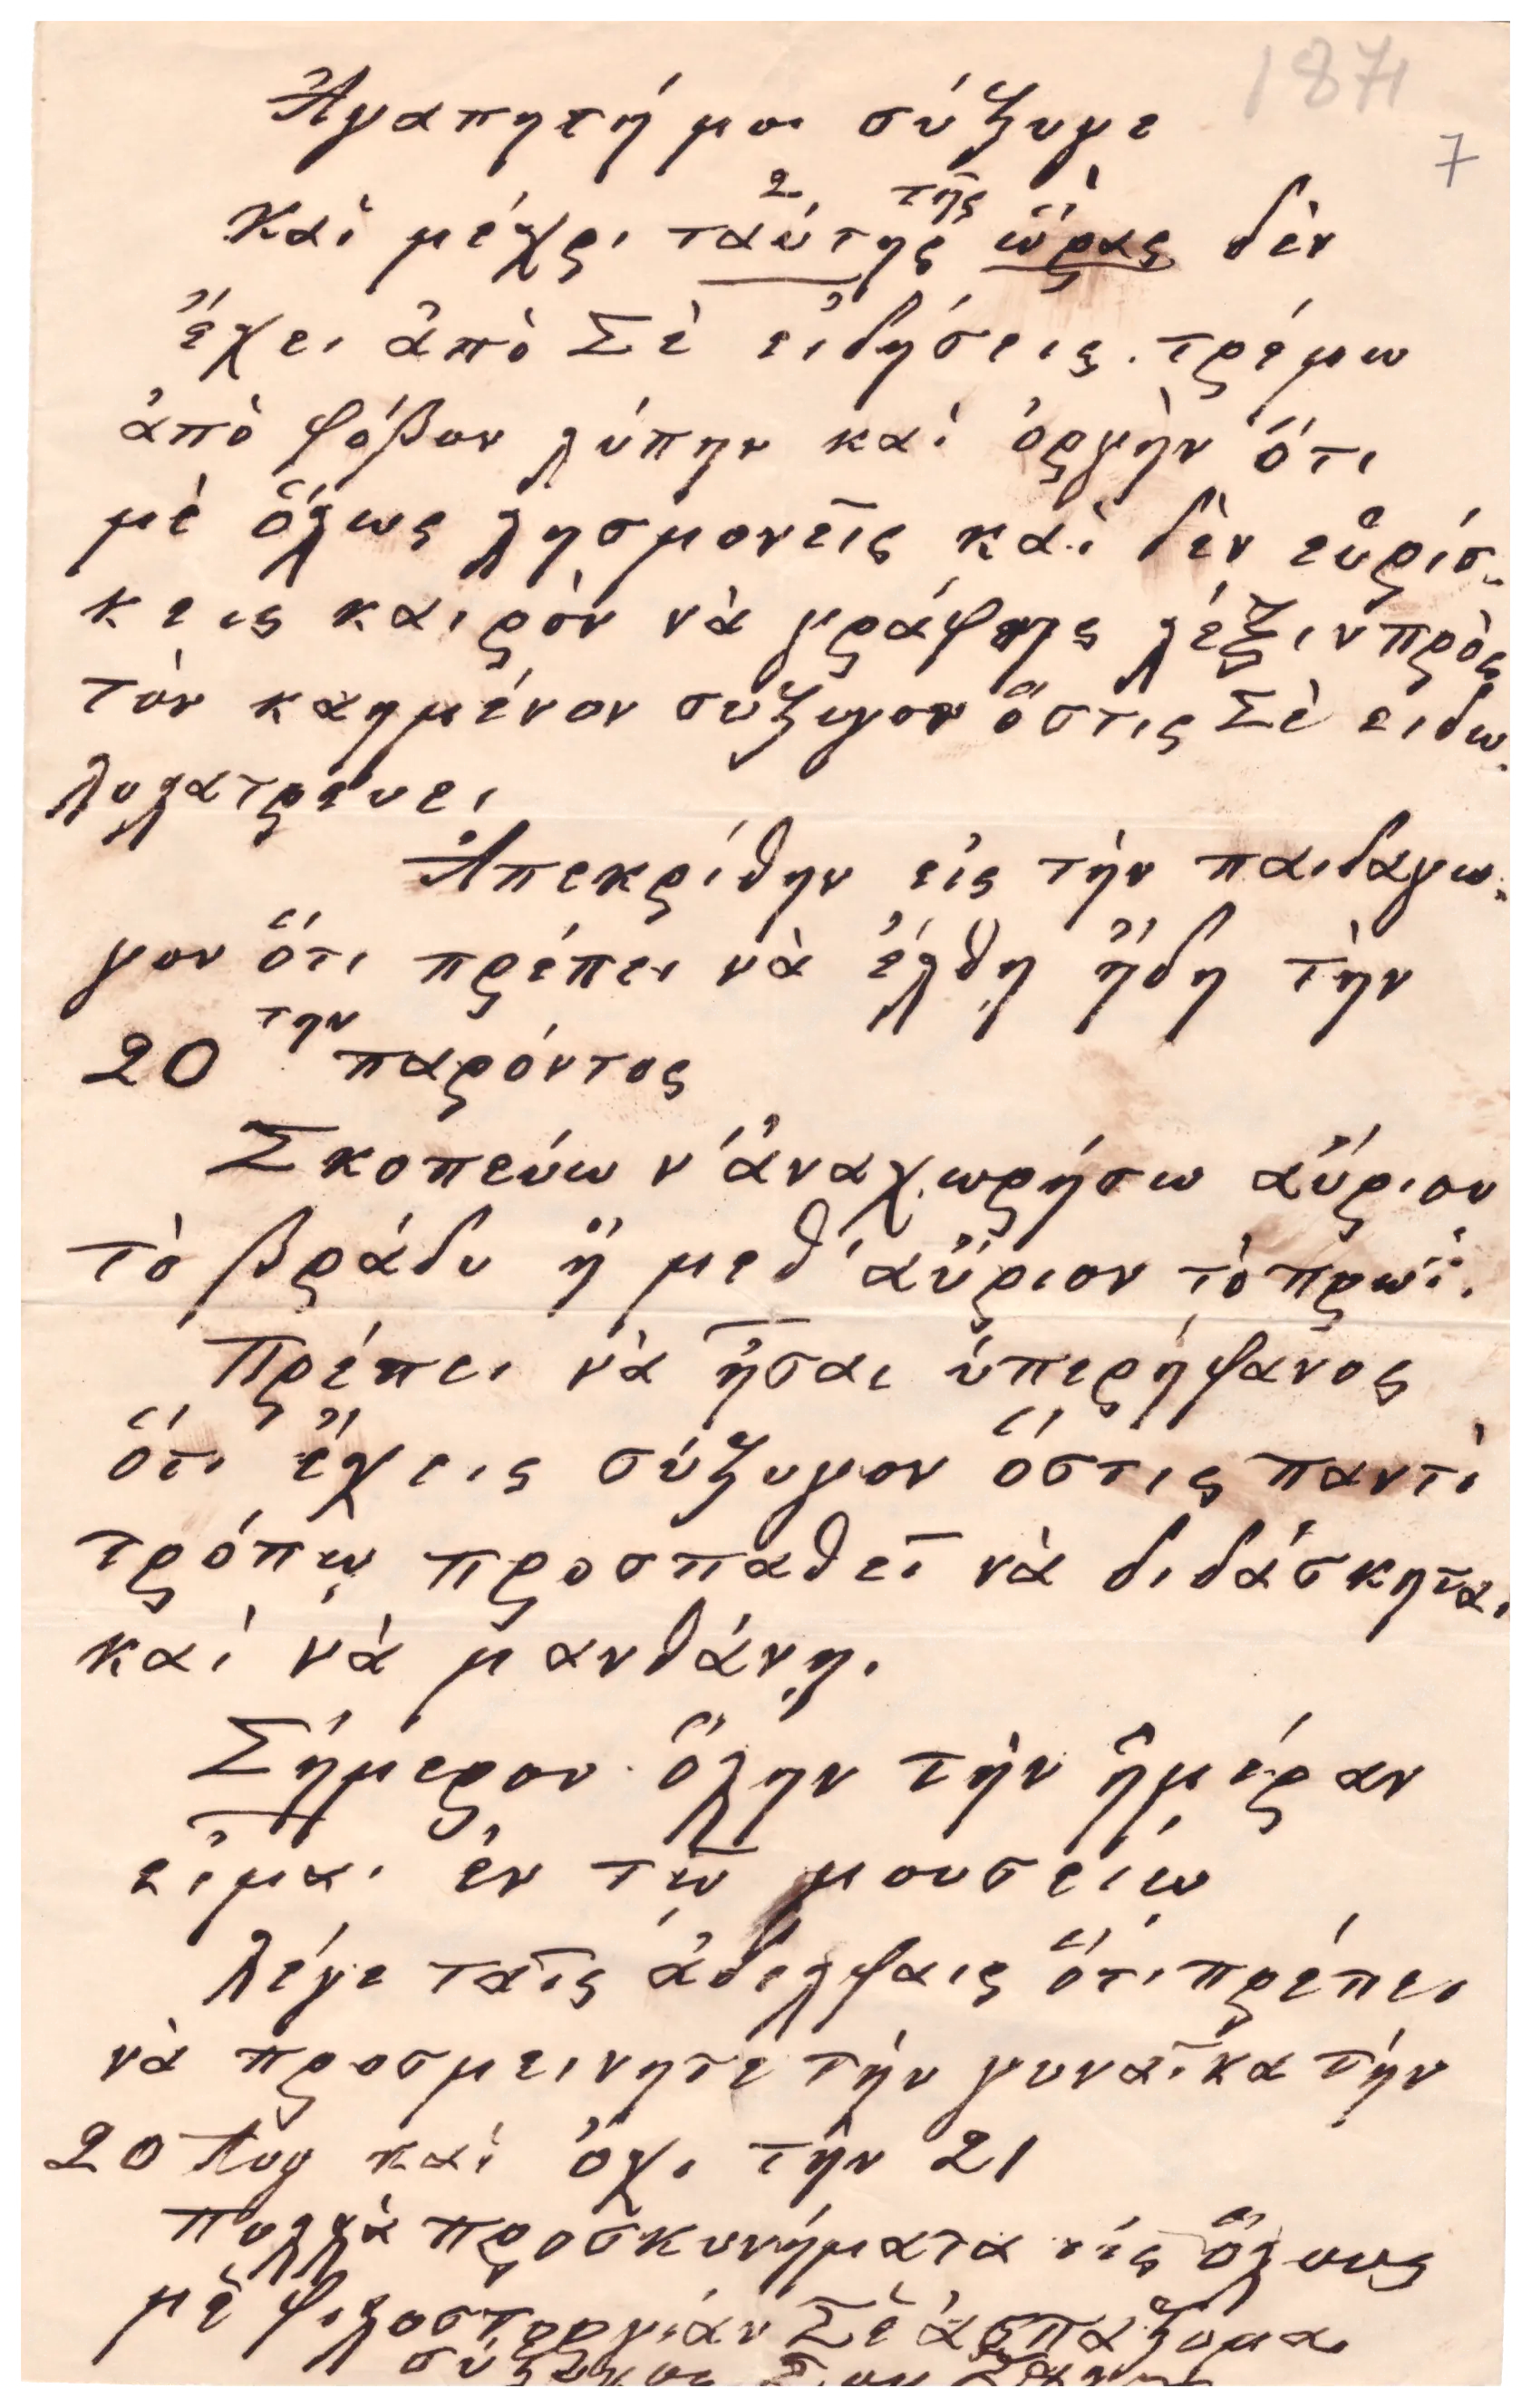 1871
7
Ἀγαπητή μοι σύζυγε
Καὶ μέχρι ταύτης 2 τῆς ὥρας δὲν
ἔχει ἀπὸ Σὲ εἰδήσεις. τρέμω
ἀπὸ φόβον λύπην καὶ ὀργὴν ὅτι
μὲ ὅλως λησμονεῖς καὶ δὲν εὑρίσ-
κεις καιρὸν νὰ γράφῃς λέξιν πρὸς
τὸν καημένον σύζυγον ὅστις Σὲ ειδω-
λολατρευει
Ἀπεκρίθην εἰς τὴν παιδαγω-
γον ὅτι πρέπει νὰ ἔλθῃ ἤδη τὴν
20 την παρόντος
Σκοπεύω ν' ἀναχωρήσω αὔριον
τὸ βράδυ ἢ μεθ' αὔριον τὸ πρωΐ.
Πρέπει νὰ ἦσαι ὑπερήφανος
ὅτι ἔχεις σύζυγον ὅστις παντὶ
τρόπῳ προσπαθεῖ νὰ διδάσκηται
καὶ νὰ μανθάνῃ.
Σήμερον ὅλην τὴν ἡμέραν
εἶμαι ἐν τῷ μουσείῳ
λέγε ταῖς ἀδελφαις ὅτι πρέπει
νὰ προσμεινητε τὴν γυναῖκα τὴν
20 Αυγ καὶ ὄχι τὴν 21
Πολλὰ προσκυνήματα εἰς ὅλους
μὲ φιλοστοργιαν Σὲ ἀσπάζομαι